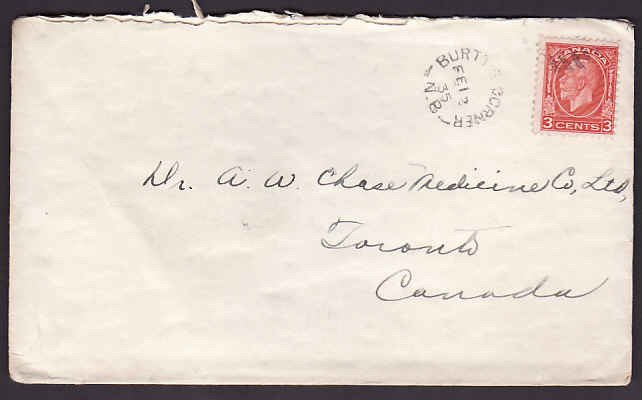 BURTT'S CORNER
FE 12
35
N.B
CANADA
3 CENTS 3
Dr. A. W. Chase Medicine Co, Ltd,
Toronto
Canada